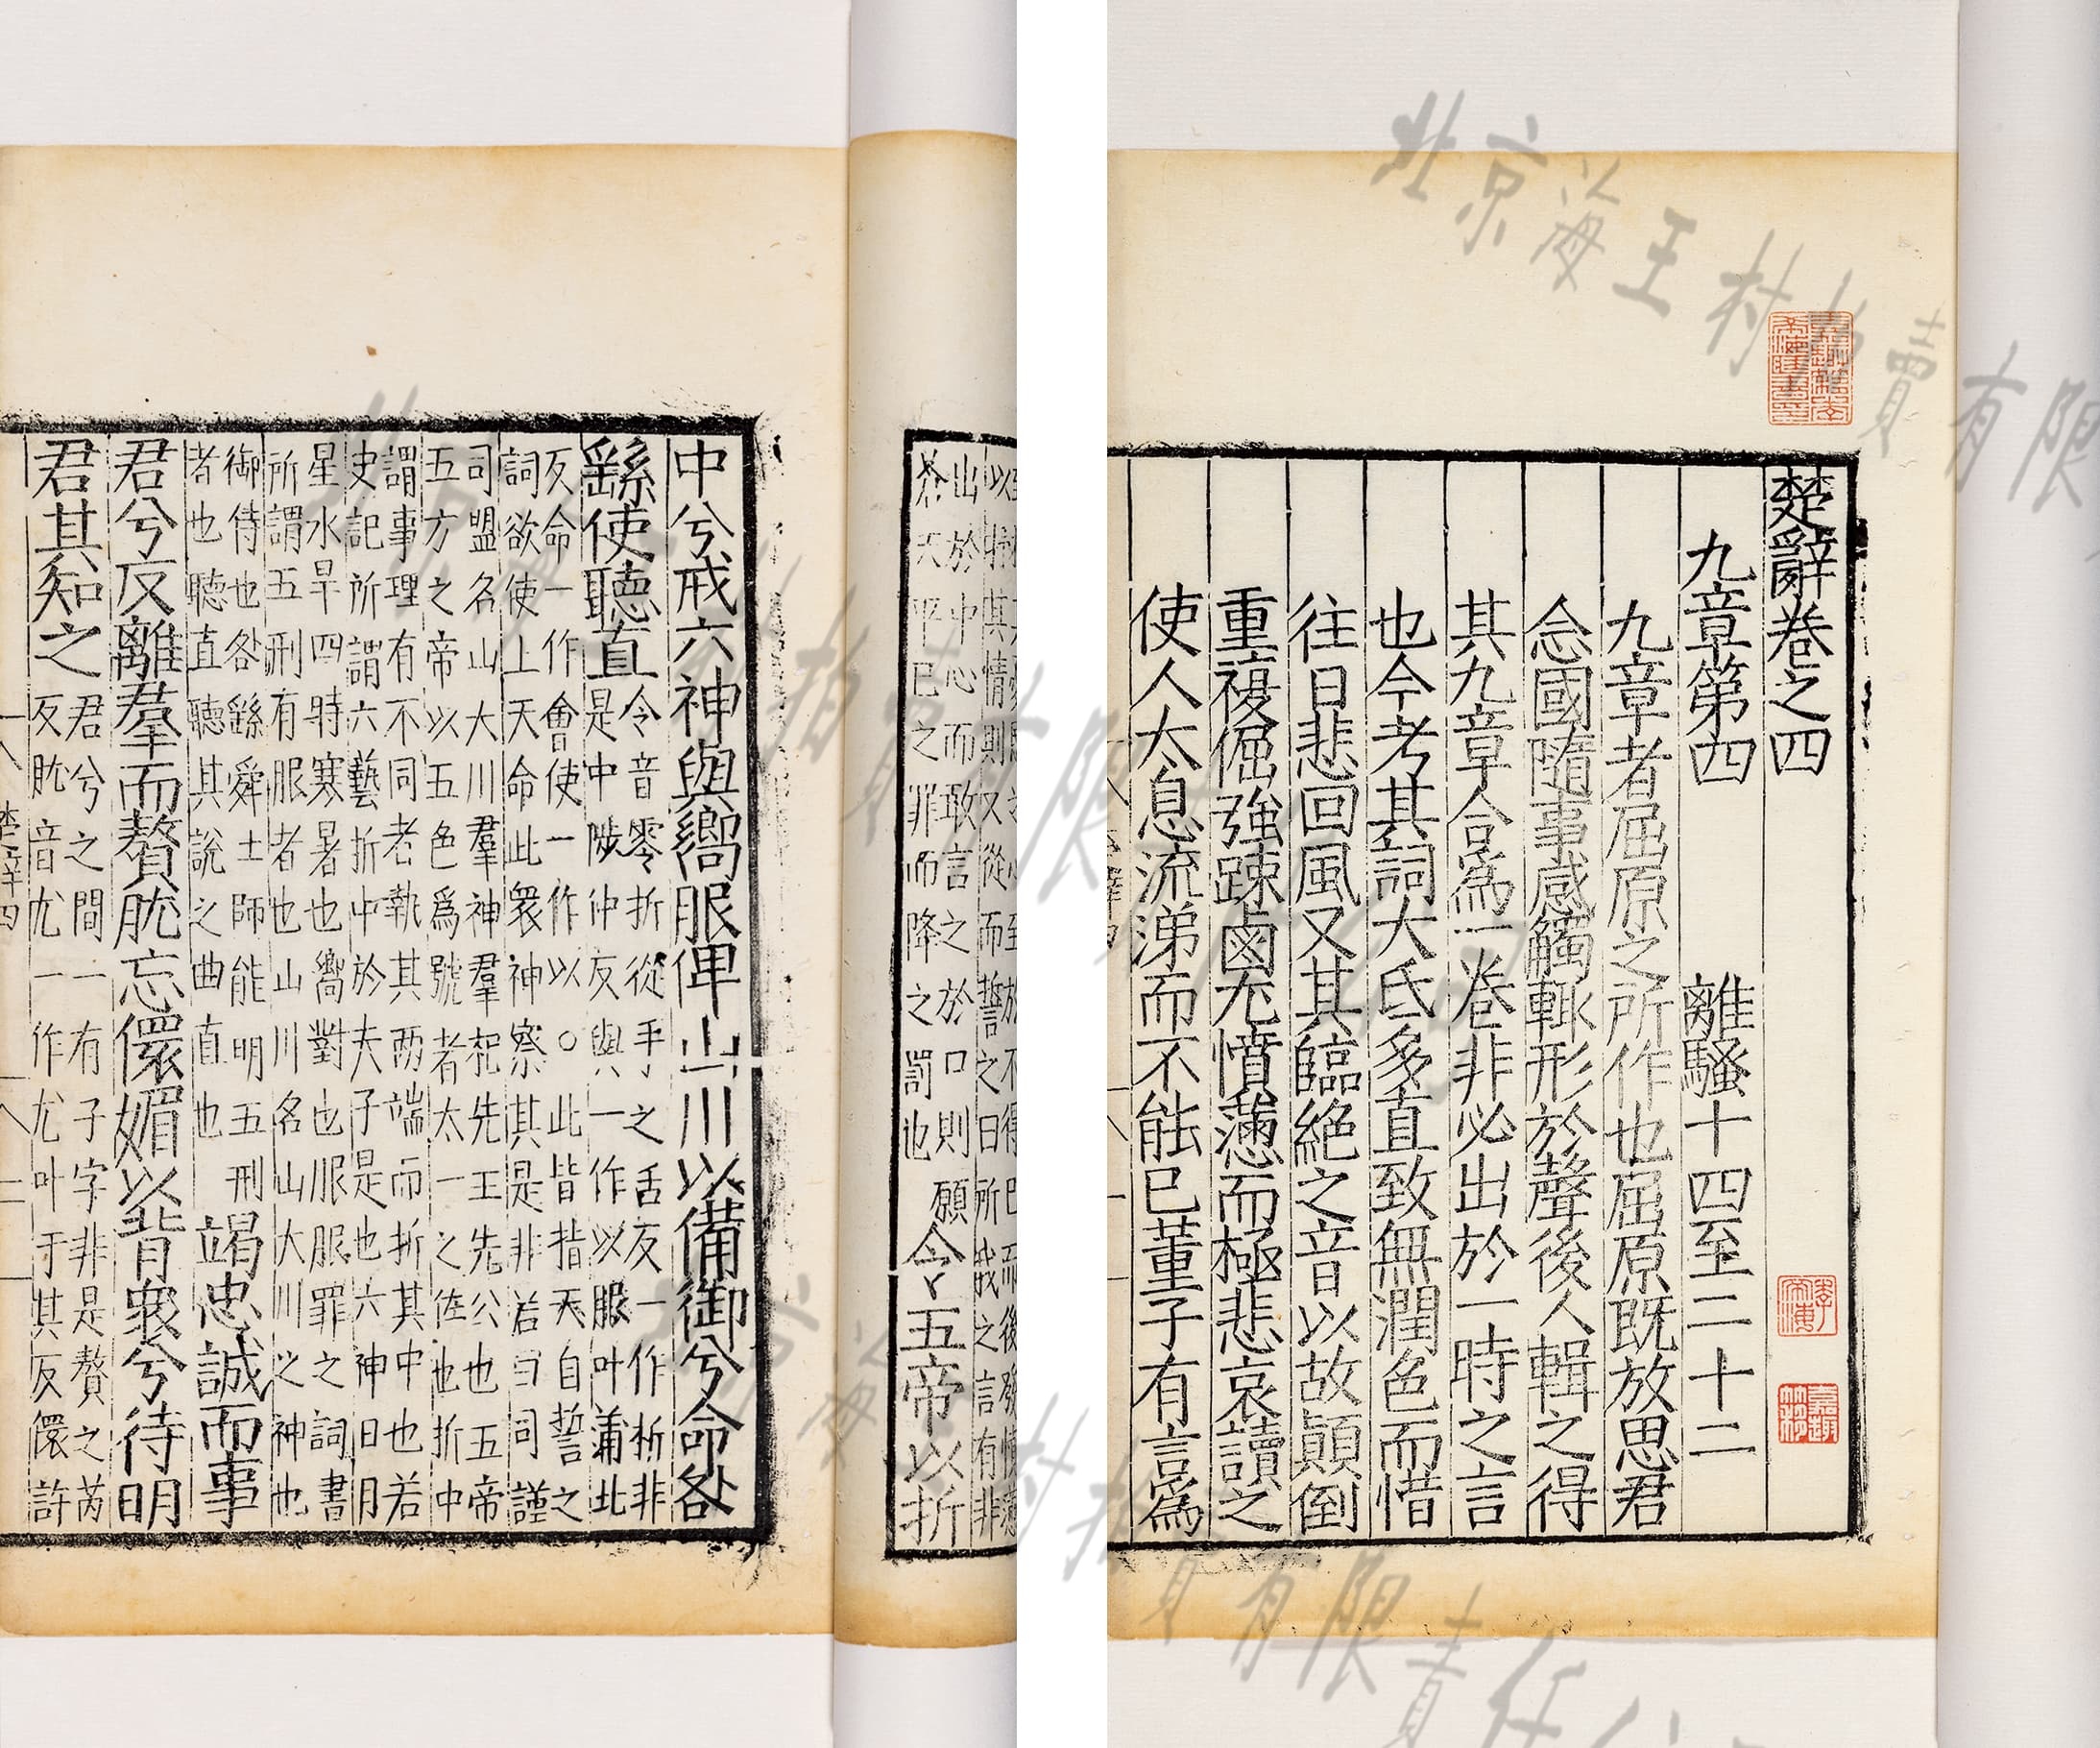 楚辭卷之四
九章第四 離騷十四至二十二
九章者屈原之所作也屈原既放思君
念國隨事感觸輒形於聲後人輯之得
其九章合爲一卷非必出於一時之言
也今考其詞大氐多直致無潤色而惜
往日悲回風又其臨絶之音以故顛倒
重複倔強疎鹵尤憤懣而極悲哀讀之
使人太息流涕而不能已董子有言爲
出於中心而敢言之於口則願
蒼天平已之罪而降之罰也
令五帝以折
中兮戒六神與嚮服俾山川以備御兮命咎
繇使聽直
令音零折從手之舌反一作析非
是中陟仲反與一作以服叶蒲北
反命一作會使一作以○此皆指天自誓之
詞欲使上天命此衆神察其是非若曰司謹
司盟名山大川羣神羣祀先王先公也五帝
五方之帝以五色爲號者太一之佐也折中
謂事理有不同者執其兩端而折其中也若
史記所謂六藝折中於夫子是也六神日月
星水旱四時寒暑也嚮對也服服罪之詞書
所謂五刑有服者也山川名山大川之神也
御侍也咎繇舜士師能明五刑
者也聽直聽其說之曲直也
竭忠誠而事
君兮反離羣而贅肬忘儇媚以背衆兮待明
君其知之
君兮之間一有子字非是贅之芮
反肬音尤一作尤叶于其反儇許
楚辭四